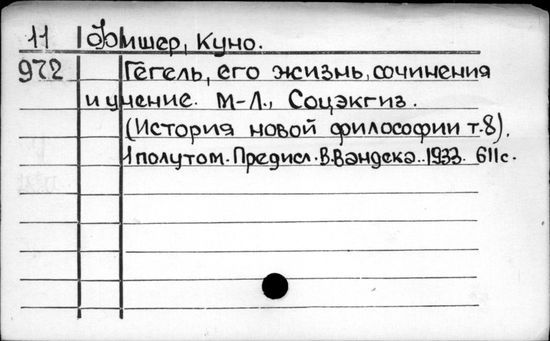 11 Фишер, Куно.
972 Гегель, его жизнь, сочинения
и учение. М-Л., Соцэкгиз.
(История новой философии т.8).
1 полутом. Предисл. В.Вандека. 1933. 611с.